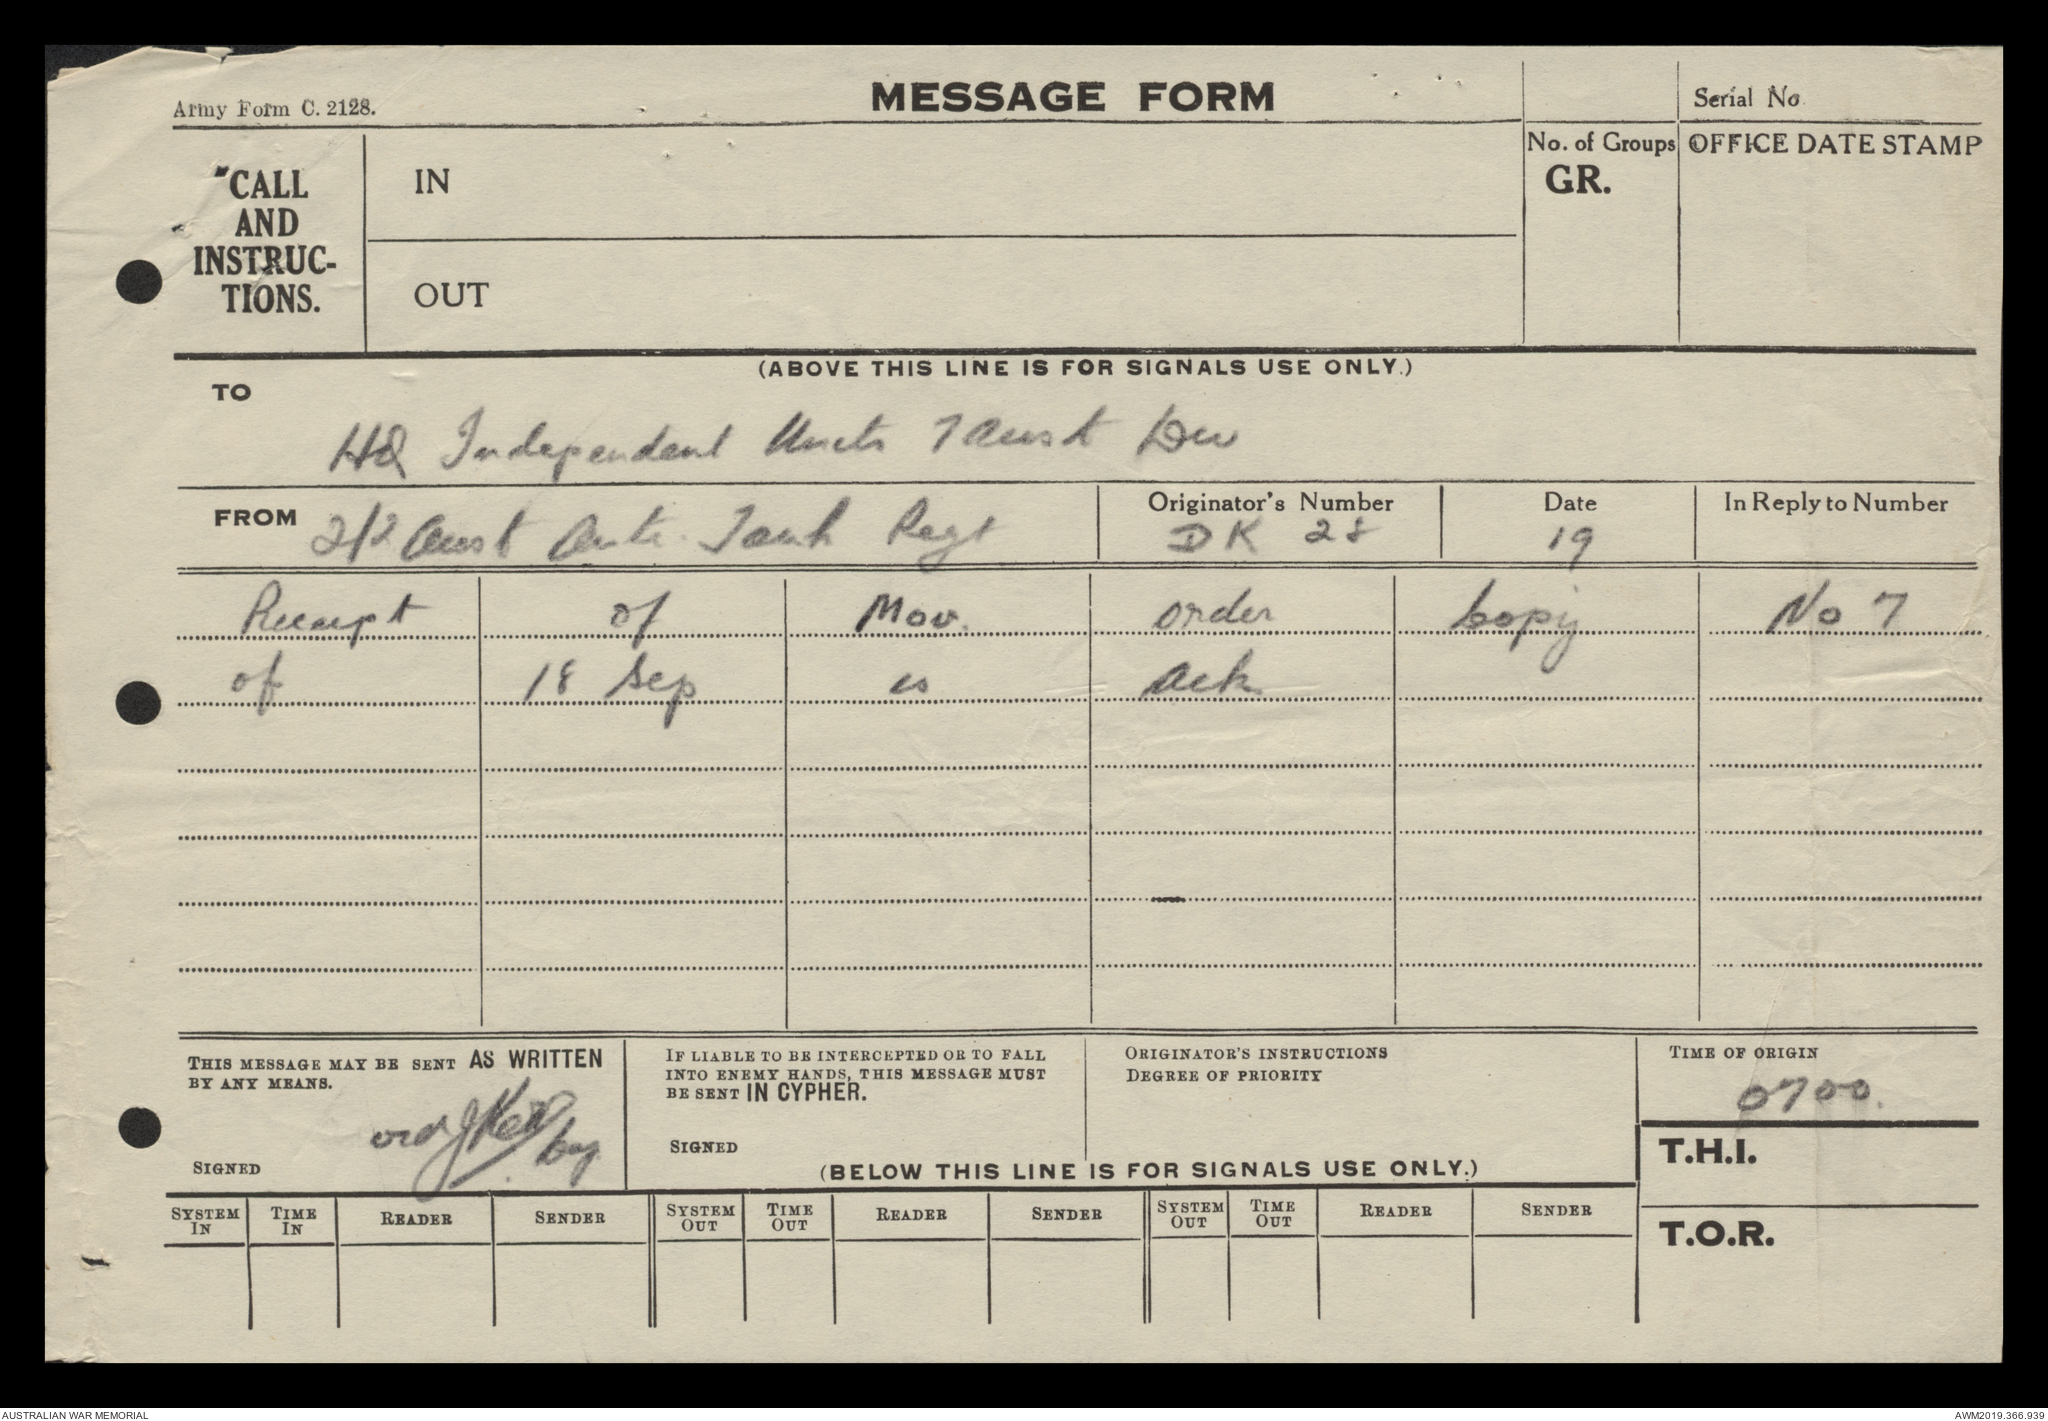 Army Form C. 2128.
MESSAGE FORM
Serial No
"CALL
AND
INSTRUC-
TIONS.
IN
OUT
No. of Groups
GR.
OFFICE DATE STAMP
(ABOVE THIS LINE IS FOR SIGNALS USE ONLY.)
TO
HQ Independent Units 7 Aust Div
FROM 2/2 Aust Anti-Tank Regt
Originator's Number
DK 28
Date
19
In Reply to Number
Receipt of Mov. order copy No 7
of 18 Sep is ack
THIS MESSAGE MAY BE SENT AS WRITTEN
BY ANY MEANS.
SIGNED
IF LIABLE TO BE INTERCEPTED OR TO FALL
INTO ENEMY HANDS, THIS MESSAGE MUST
BE SENT IN CYPHER.
SIGNED
ORIGINATOR'S INSTRUCTIONS
DEGREE OF PRIORITY
TIME OF ORIGIN
0700.
T.H.I.
T.O.R.
(BELOW THIS LINE IS FOR SIGNALS USE ONLY.)
SYSTEM IN
TIME IN
READER
SENDER
SYSTEM OUT
TIME OUT
READER
SENDER
SYSTEM OUT
TIME OUT
READER
SENDER
AUSTRALIAN WAR MEMORIAL
AWM2019.366.939